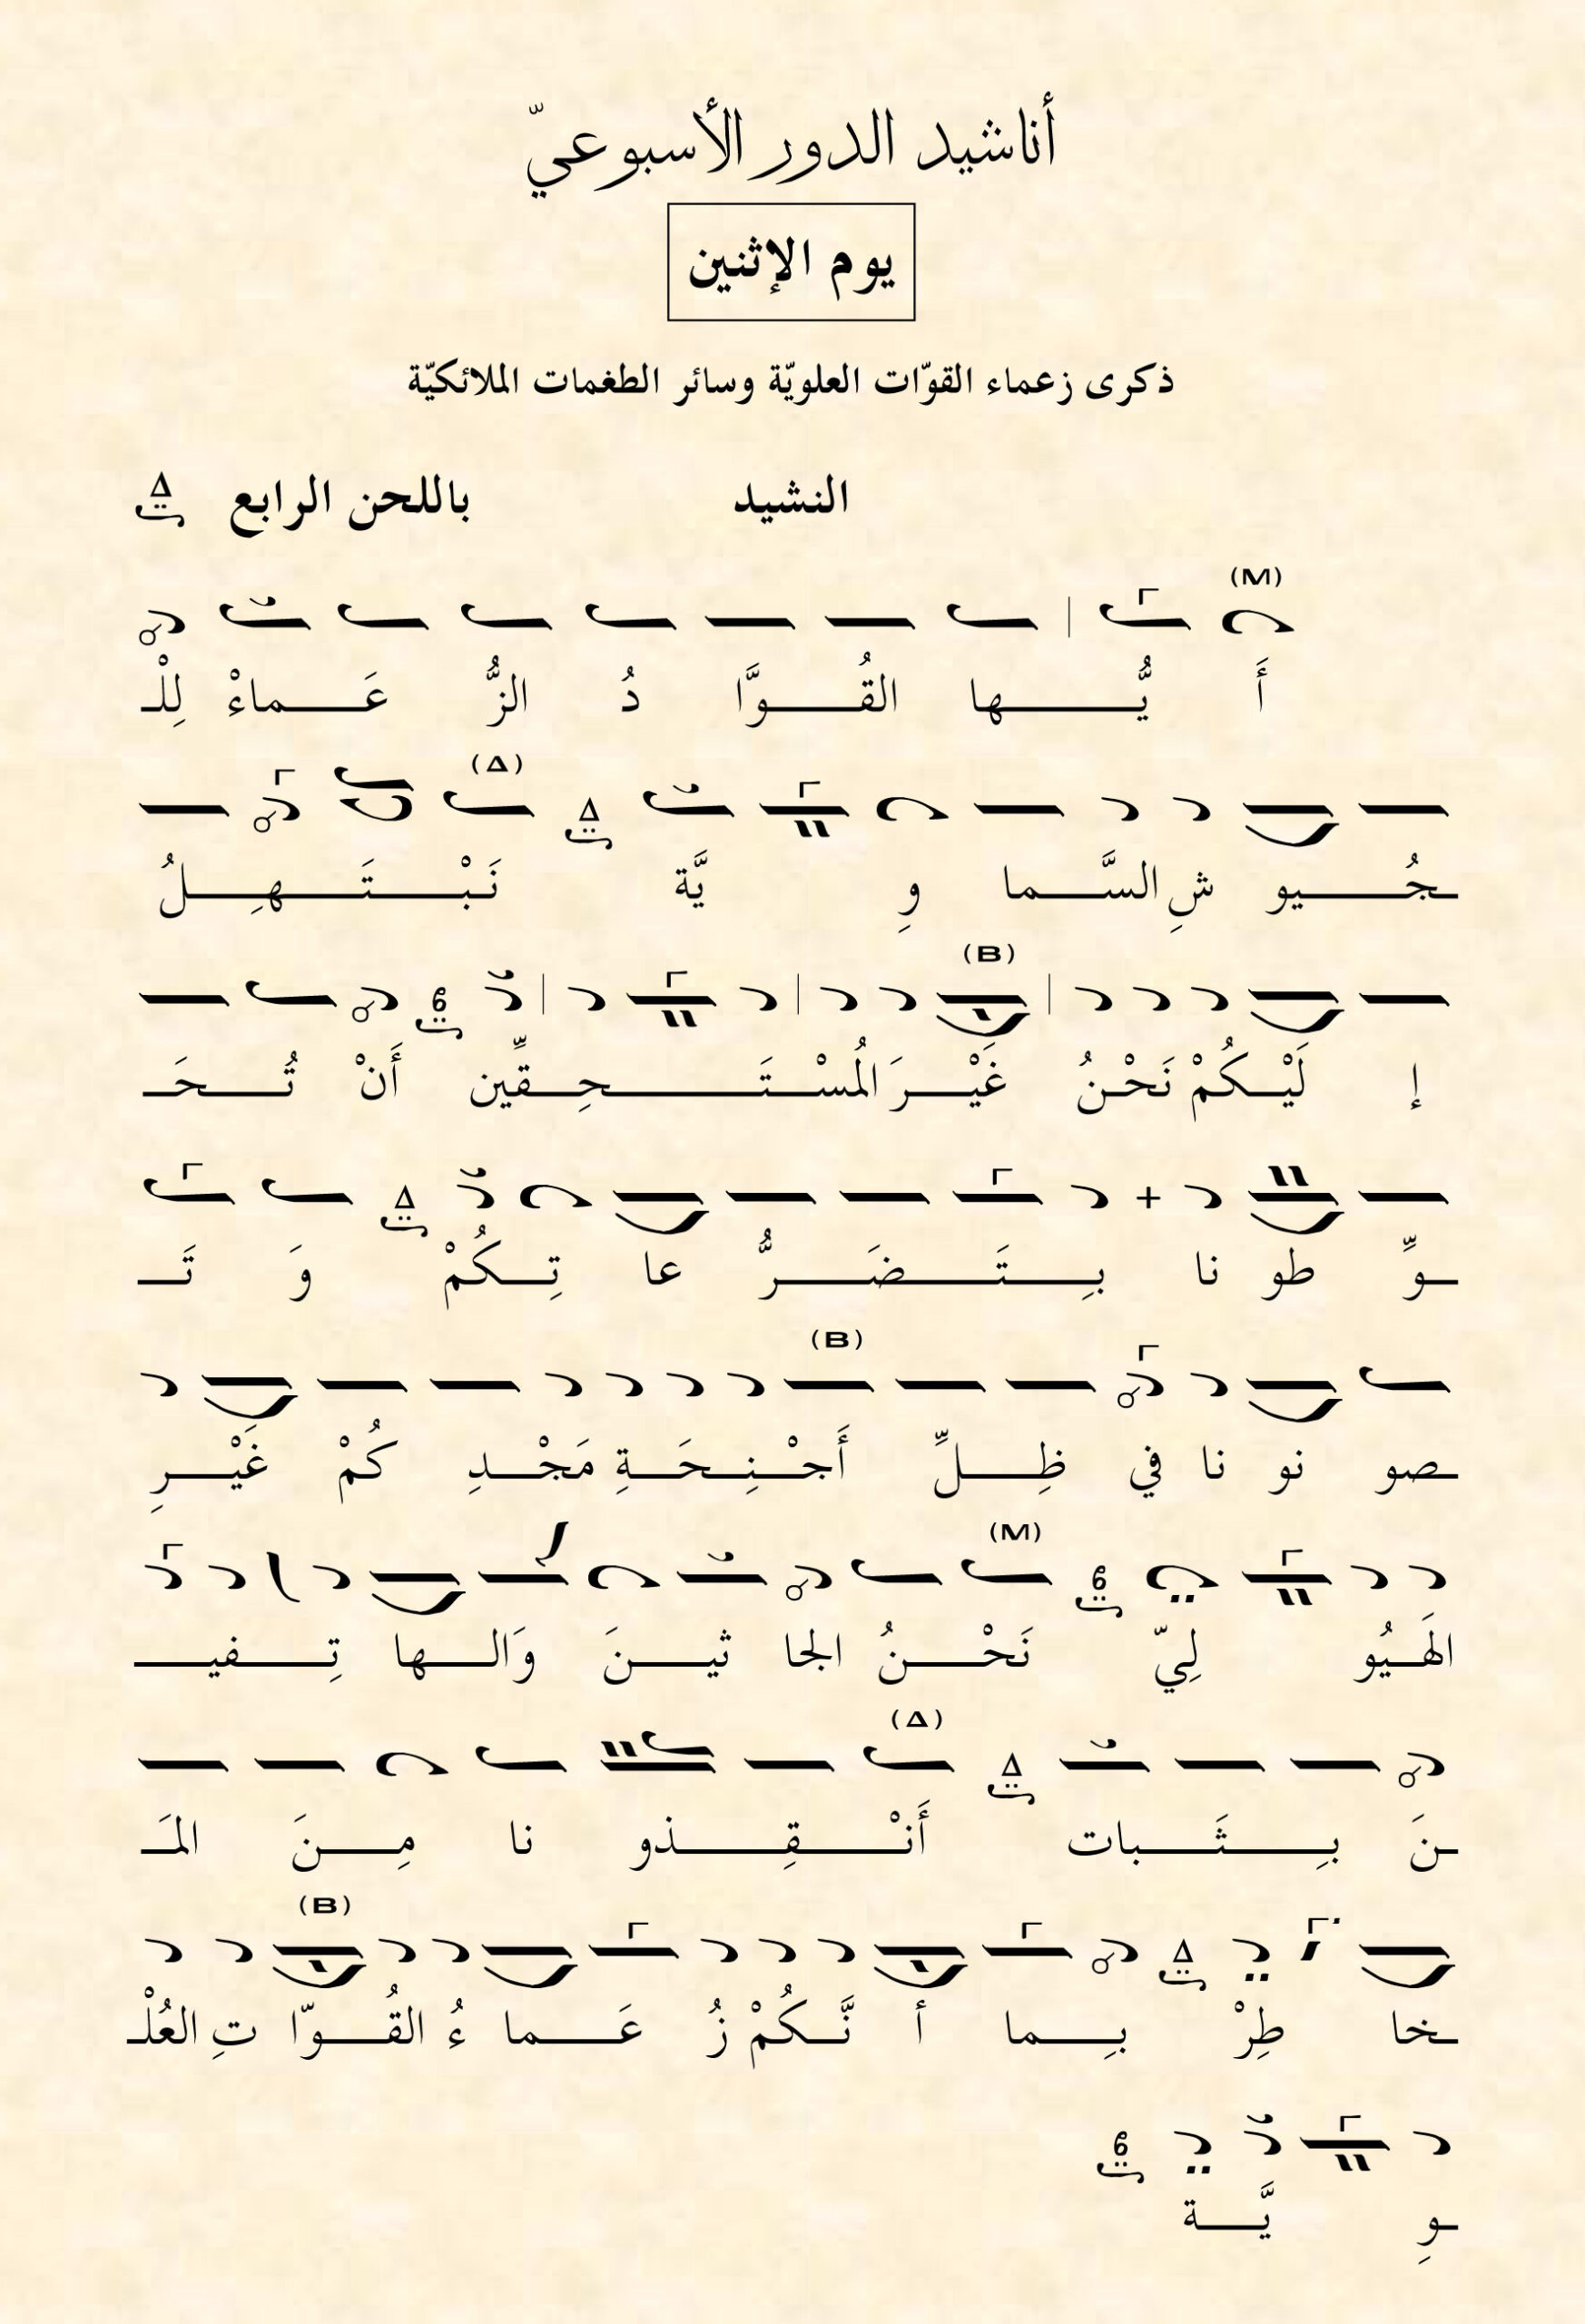 أناشيد الدور الأسبوعيّ
يوم الإثنين
ذكرى زعماء القوّات العلويّة وسائر الطغمات الملائكيّة
النشيد باللحن الرابع Δ
(M)
أَ يُّـــها القُـــوَّا دُ الزُّ عَـــماءْ لِلْـ
(Δ)
Δ
ـجُـــيو شِ السَّـــما وِ يَّة نَبْـــتَـــهِـــلُ
(B)
6
إ لَيْـــكُمْ نَحْـنُ غَيْـــرَ المُسْـــتَـــحِـــقِّين أَنْ تُـــحَـ
Δ
ـوِّ طو نا بِـــتَـــضَـــرُّ عا تِـــكُمْ وَ تَـ
(B)
ـصو نو نا في ظِـــلِّ أَجْـــنِـــحَـــةِ مَجْـــدِ كُمْ غَيْـــرِ
(M)
6
الهَـيُو لِيّ نَحْـــنُ الجا ثيـــنَ وَالـــها تِـــفيـــ
(Δ)
Δ
ـنَ بِـــثَـــبات أَنْـــقِـــذو نا مِـــنَ المَـ
(B)
Δ
ـخا طِرْ بِـــما أ نَّـــكُمْ زُ عَـــما ءُ القُـــوّا تِ العُلْـ
6
ـوِ يَّـــة